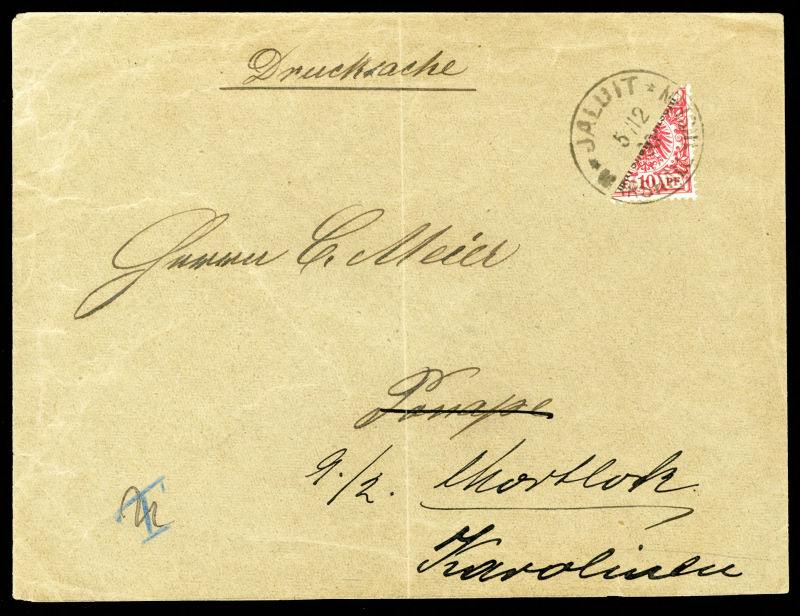 Drucksache
JALUIT * MARSHALL
5/12
10 PF
Herrn C. Meier
Ponape
9./2. Mortlok
Karolinen